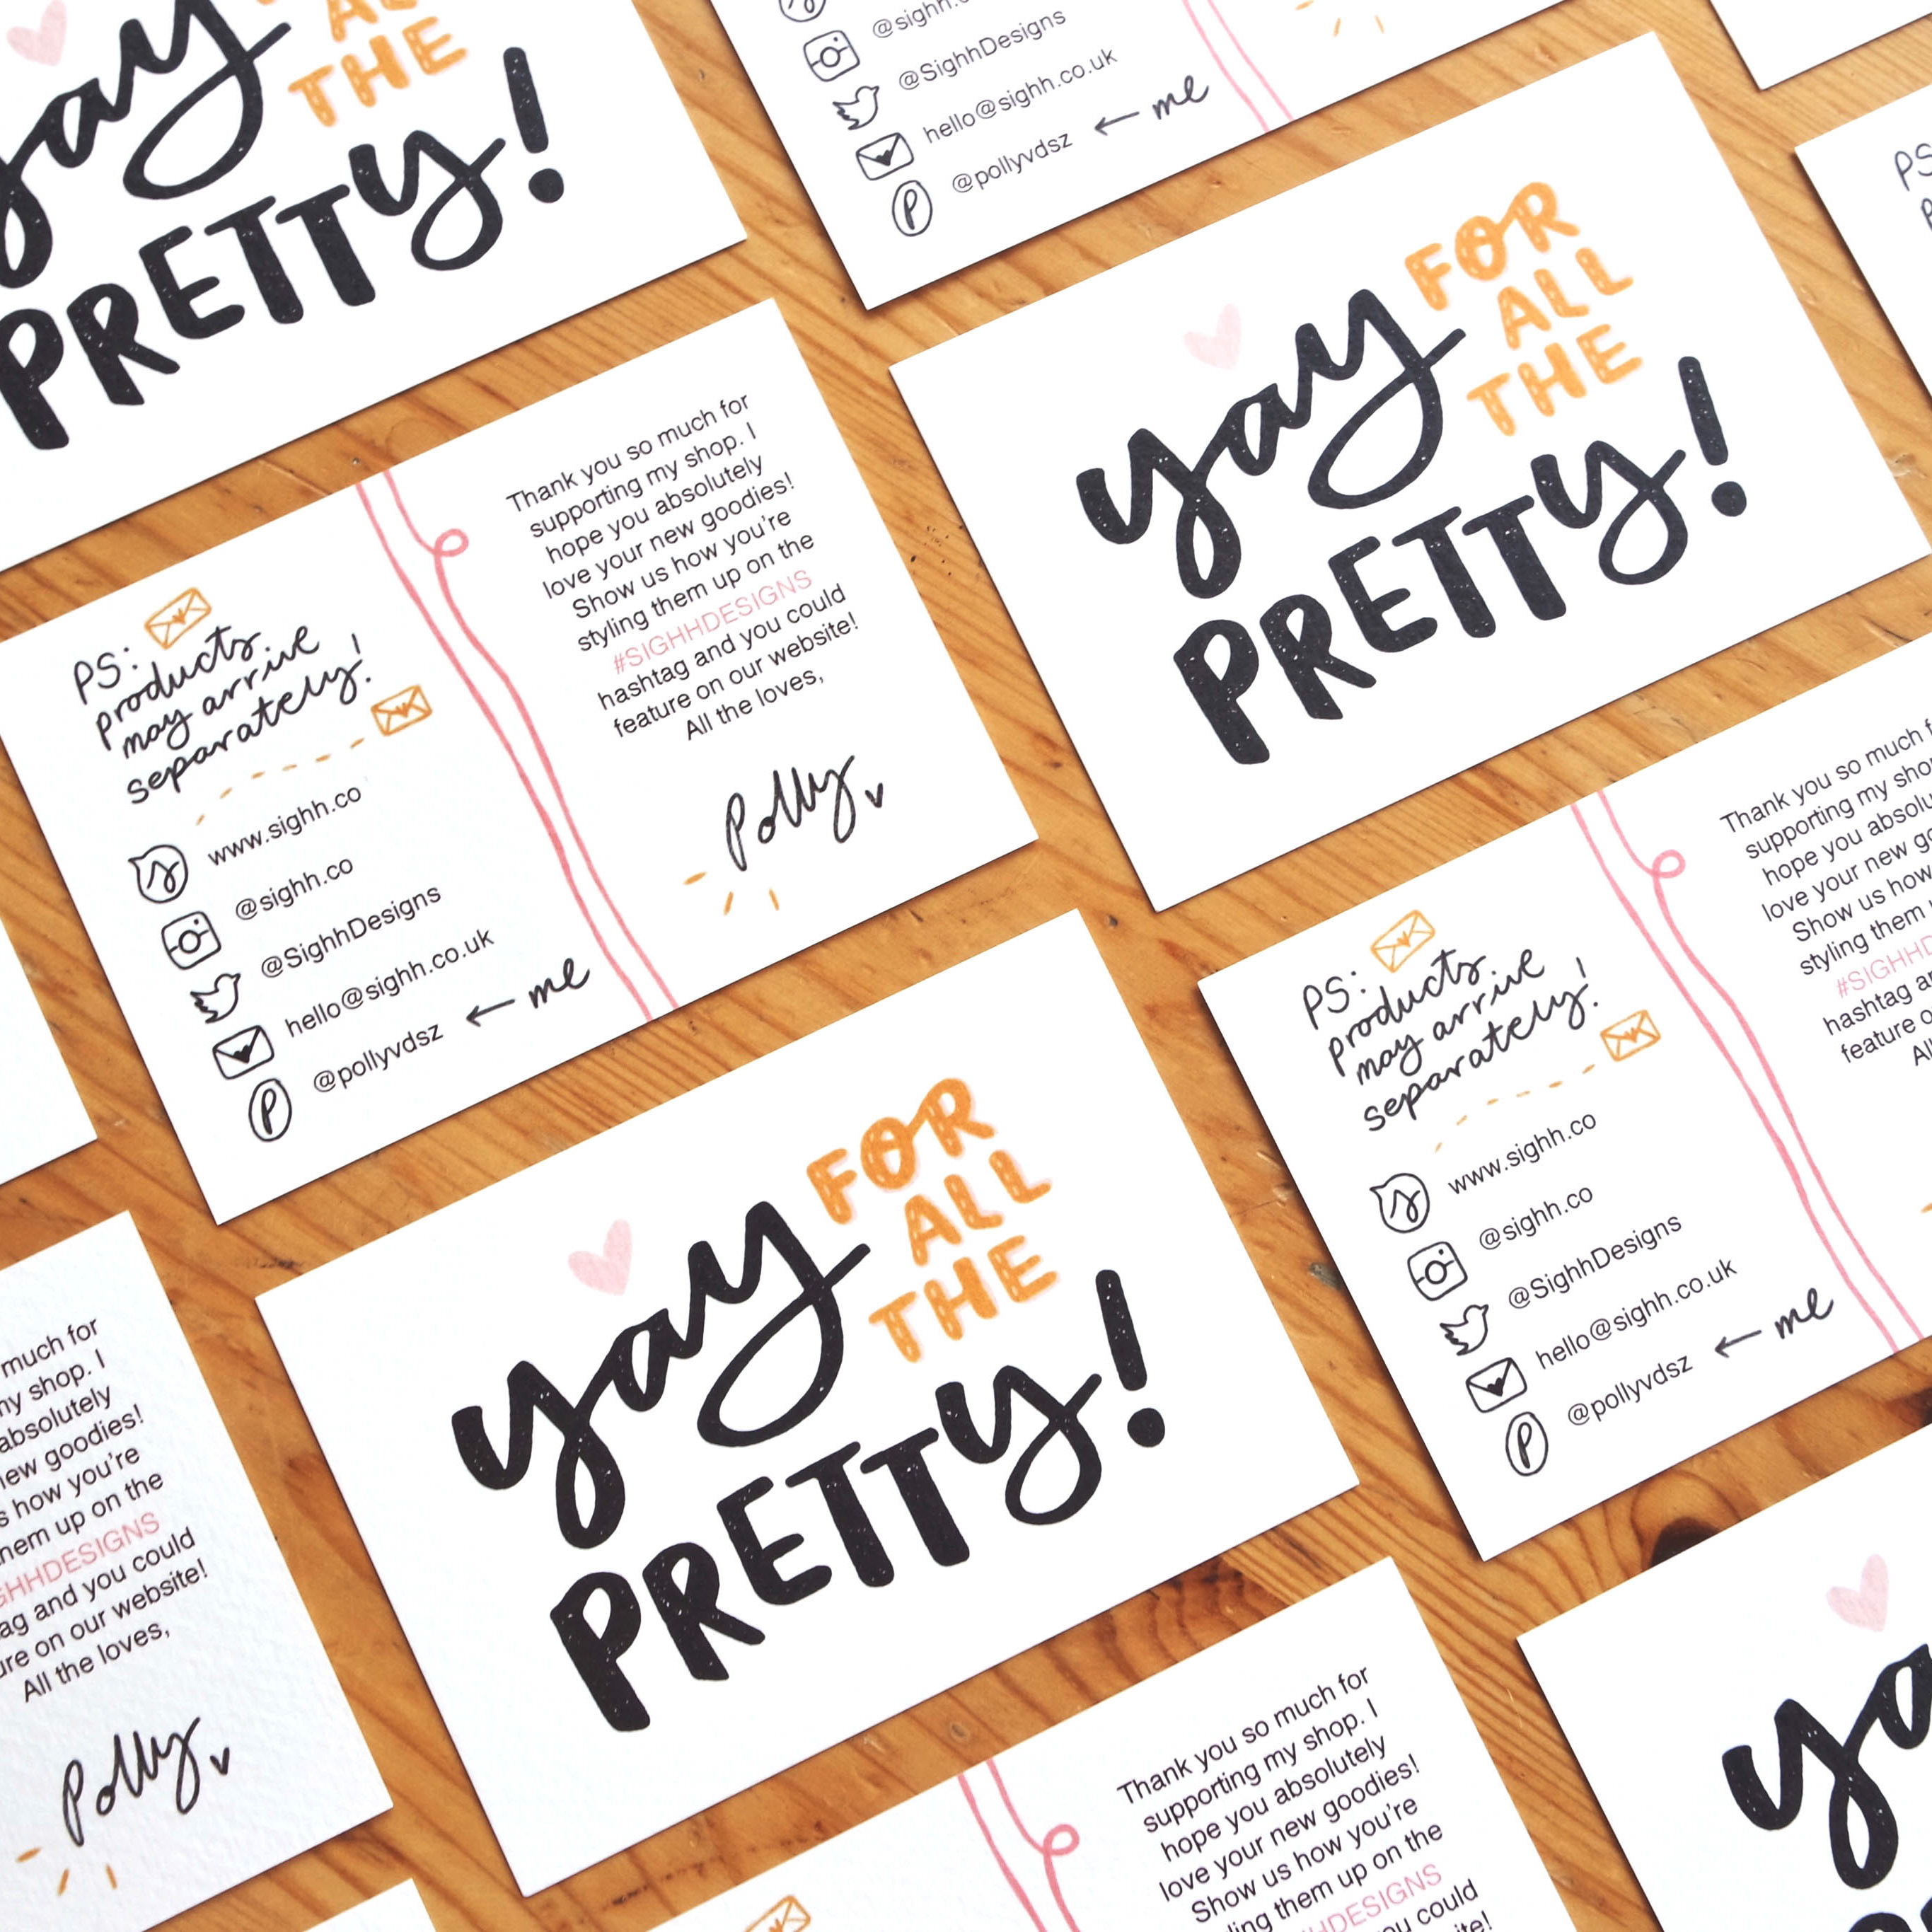 yay
AL
THE
PRETTY!
@sighh.c
@SighhDesigns
hello@sighh.co.uk
@pollyvdsz ← me
yay FOR
ALL
THE
PRETTY!
PS
PS:
products
may arrive
separately!
www.sighh.co
@sighh.co
@SighhDesigns
hello@sighh.co.uk
@pollyvdsz ← me
Thank you so much for
supporting my shop. I
hope you absolutely
love your new goodies!
Show us how you're
styling them up on the
#SIGHHDESIGNS
hashtag and you could
feature on our website!
All the loves,
Polly
PS:
products
may arrive
separately!
www.sighh.co
@sighh.co
@SighhDesigns
hello@sighh.co.uk
@pollyvdsz ← me
Thank you so much f
supporting my shop
hope you absolu
love your new go
Show us how
styling them
#SIGHHD
hashtag a
feature o
Al
yay FOR
ALL
THE
PRETTY!
much for
my shop. I
absolutely
ew goodies!
s how you're
hem up on the
GHHDESIGNS
ag and you could
ure on our website!
All the loves,
Polly
Thank you so much for
supporting my shop. I
hope you absolutely
love your new goodies!
Show us how you're
ling them up on the
HDESIGNS
ou could
ite!
ya